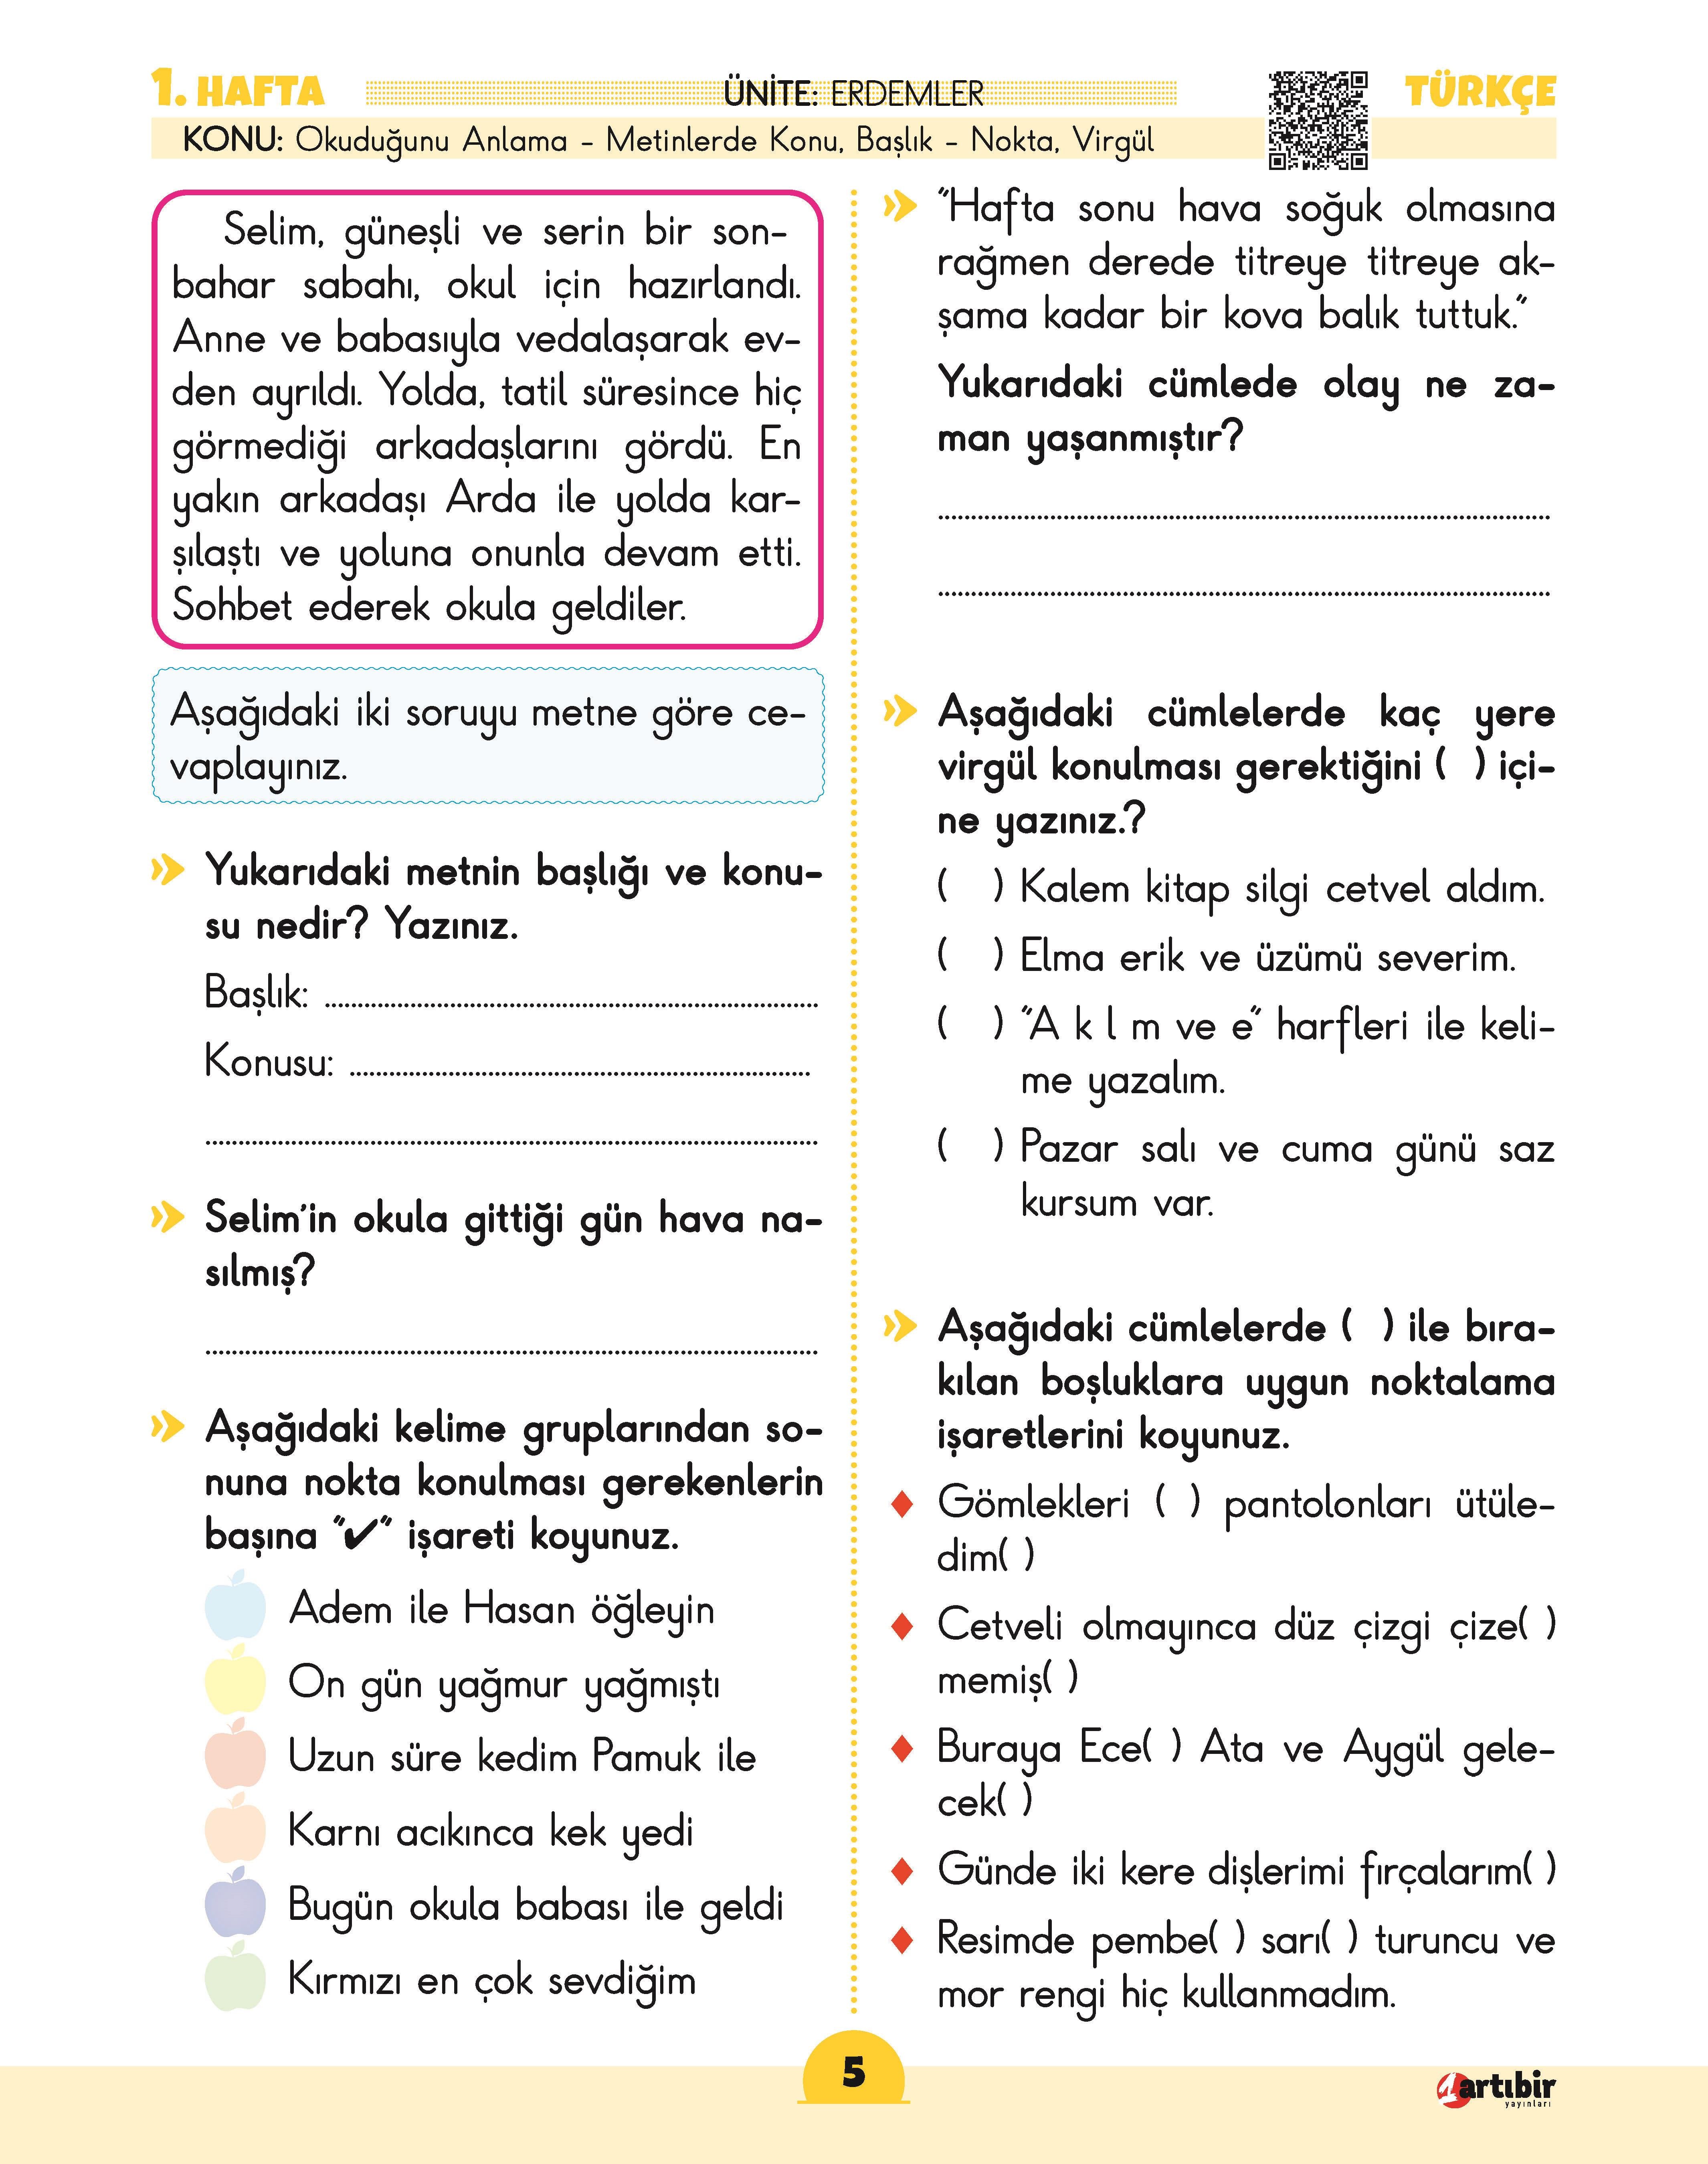 1. HAFTA
ÜNİTE: ERDEMLER
TÜRKÇE
KONU: Okuduğunu Anlama - Metinlerde Konu, Başlık - Nokta, Virgül
Selim, güneşli ve serin bir son-
bahar sabahı, okul için hazırlandı.
Anne ve babasıyla vedalaşarak ev-
den ayrıldı. Yolda, tatil süresince hiç
görmediği arkadaşlarını gördü. En
yakın arkadaşı Arda ile yolda kar-
şılaştı ve yoluna onunla devam etti.
Sohbet ederek okula geldiler.
Aşağıdaki iki soruyu metne göre ce-
vaplayınız.
Yukarıdaki metnin başlığı ve konu-
su nedir? Yazınız.
Başlık: ..........................................................................
Konusu: .....................................................................
............................................................................................
Selim'in okula gittiği gün hava na-
sılmış?
............................................................................................
Aşağıdaki kelime gruplarından so-
nuna nokta konulması gerekenlerin
başına "✔" işareti koyunuz.
Adem ile Hasan öğleyin
On gün yağmur yağmıştı
Uzun süre kedim Pamuk ile
Karnı acıkınca kek yedi
Bugün okula babası ile geldi
Kırmızı en çok sevdiğim
"Hafta sonu hava soğuk olmasına
rağmen derede titreye titreye ak-
şama kadar bir kova balık tuttuk."
Yukarıdaki cümlede olay ne za-
man yaşanmıştır?
............................................................................................
............................................................................................
Aşağıdaki cümlelerde kaç yere
virgül konulması gerektiğini (  ) içi-
ne yazınız.?
(   ) Kalem kitap silgi cetvel aldım.
(   ) Elma erik ve üzümü severim.
(   ) "A k l m ve e" harfleri ile keli-
me yazalım.
(   ) Pazar salı ve cuma günü saz
kursum var.
Aşağıdaki cümlelerde (  ) ile bıra-
kılan boşluklara uygun noktalama
işaretlerini koyunuz.
♦ Gömlekleri ( ) pantolonları ütüle-
dim( )
♦ Cetveli olmayınca düz çizgi çize( )
memiş( )
♦ Buraya Ece( ) Ata ve Aygül gele-
cek( )
♦ Günde iki kere dişlerimi fırçalarım( )
♦ Resimde pembe( ) sarı( ) turuncu ve
mor rengi hiç kullanmadım.
5
1 artıbir
yayınları